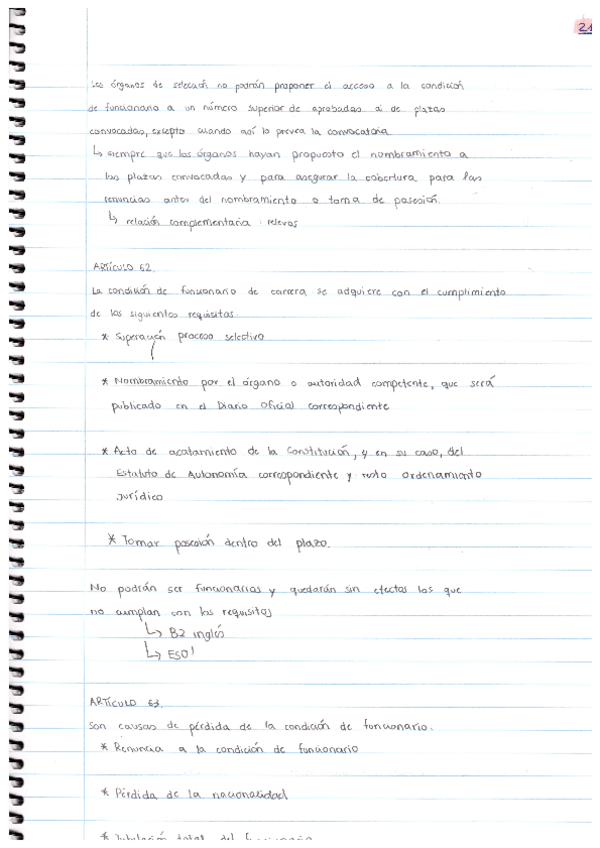 21
Los órganos de selección no podrán proponer el acceso a la condición
de funcionario a un número superior de aprobados al de plazas
convocadas, excepto cuando así lo prevea la convocatoria
↳ siempre que los órganos hayan propuesto el nombramiento a
las plazas convocadas y para asegurar la cobertura para las
renuncias antes del nombramiento o toma de posesión.
↳ relación complementaria : relevos
ARTÍCULO 62.
La condición de funcionario de carrera se adquiere con el cumplimiento
de los siguientes requisitos.
* Superación proceso selectivo
* Nombramiento por el órgano o autoridad competente, que será
publicado en el Diario Oficial correspondiente
* Acto de acatamiento de la Constitución, y en su caso, del
Estatuto de Autonomía correspondiente y resto ordenamiento
jurídico
* Tomar posesión dentro del plazo.
No podrán ser funcionarios y quedarán sin efectos los que
no cumplan con los requisitos
↳ B2 inglés
↳ ESO!
ARTÍCULO 63.
Son causas de pérdida de la condición de funcionario.
* Renuncia a la condición de funcionario
* Pérdida de la nacionalidad
* Jubilación total del funcionario